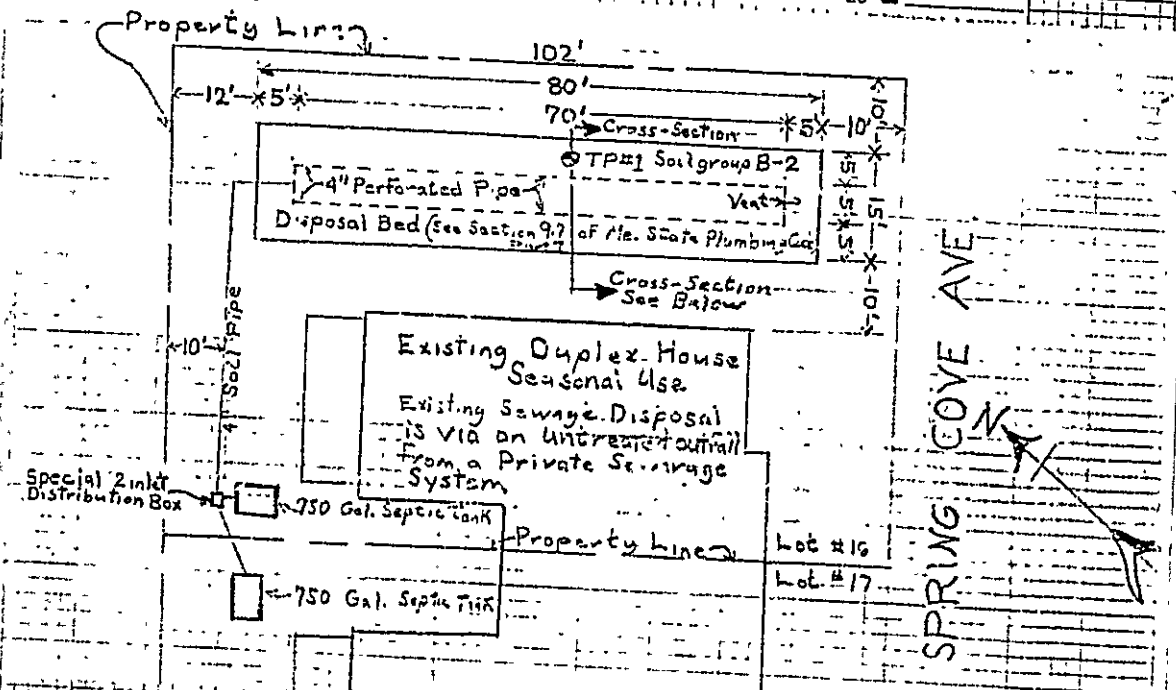 Property Line
102'
80'
12' 5'
70'
Cross-Section
5' 10'
10'
TP#1 Soilgroup B-2
5'
5'
15'
5'
10'
4" Perforated Pipe
Vent
Disposal Bed (See Section 9.7 of Me. State Plumbing
Cross-Section
See Below
4" Soil Pipe
10'
Existing Duplex House
Seasonal Use
Existing Sewage Disposal
is via an untreated outfall
from a Private Sewerage
System
Special 2 inlet
Distribution Box
750 Gal. Septic Tank
Property Line
Lot #16
Lot #17
750 Gal. Septic Tank
SPRING COVE AVE
N